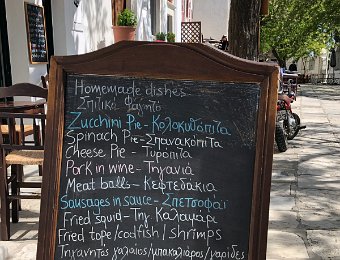 Homemade dishes
Σπιτικό Φαγητό
Zucchini Pie - Κολοκυθόπιτα
Spinach Pie - Σπανακόπιτα
Cheese Pie - Τυρόπιτα
Pork in wine - Τηγανιά
Meat balls - Κεφτεδάκια
Sausages in sauce - Σπετσοφάι
Fried squid - Τηγ. Καλαμάρι
Fried tope / codfish / shrimps
Τηγανητός γαλαίος / μπακαλιάρος / γαρίδες